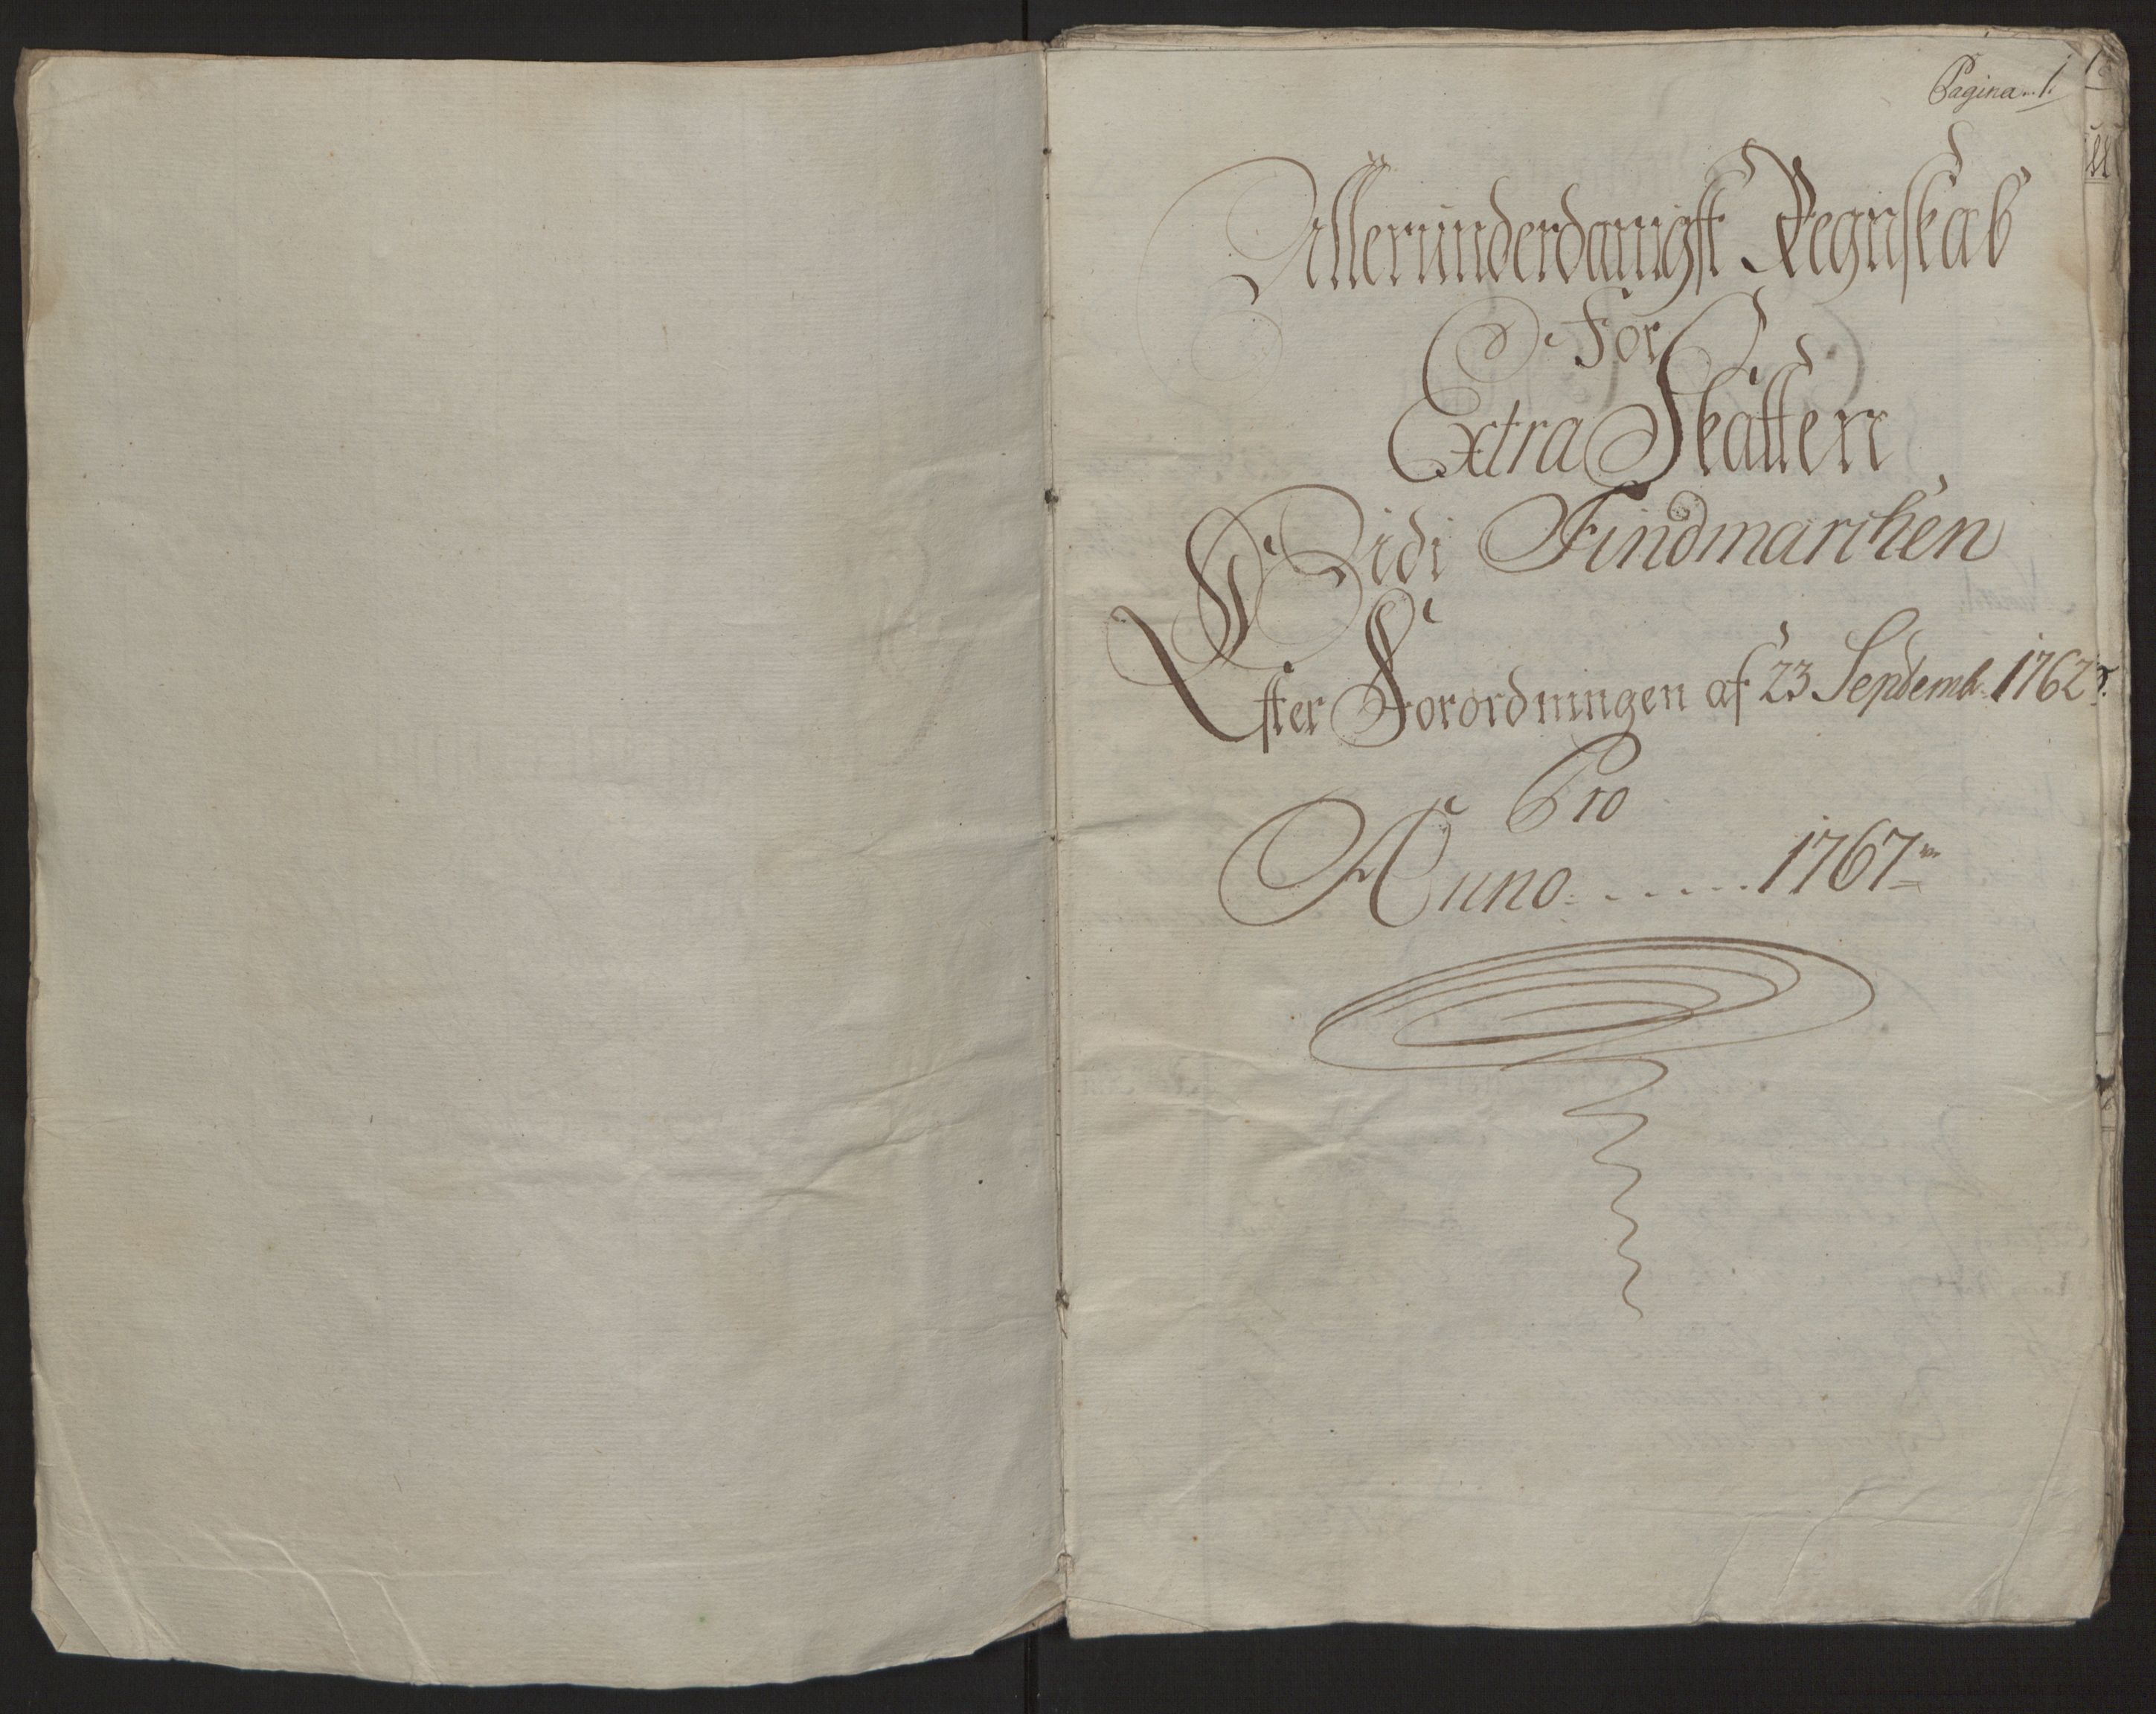 Pagina 1.
Allerunderdanigst Regnskab
For
Extra Skatten
Udi Findmarchen
Efter Forordningen af 23 Septembr. 1762
Pro
Anno ...... 1767